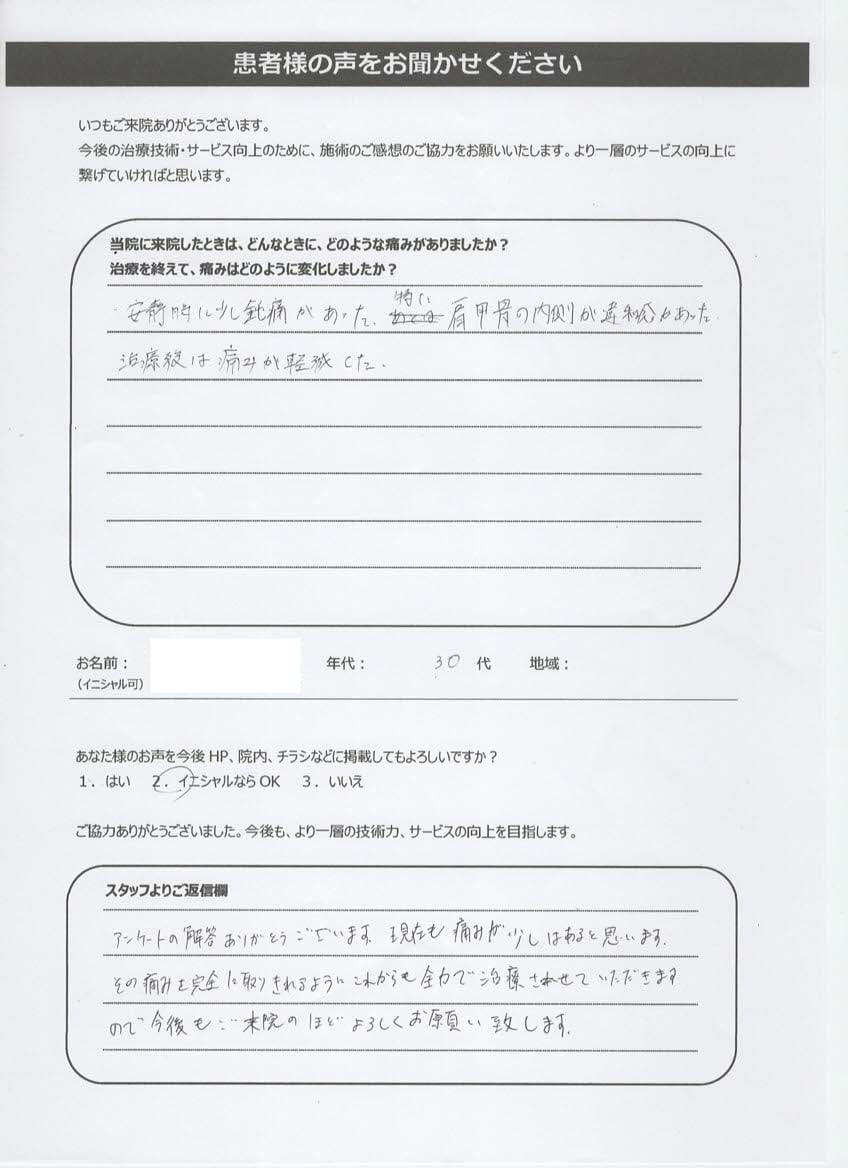 患者様の声をお聞かせください
いつもご来院ありがとうございます。
今後の治療技術・サービス向上のために、施術のご感想のご協力をお願いいたします。より一層のサービスの向上に
繋げていければと思います。
当院に来院したときは、どんなときに、どのような痛みがありましたか？
治療を終えて、痛みはどのように変化しましたか？
特に
安静時に少し鈍痛があった、肩甲骨の内側が違和感があった.
治療後は痛みが軽減した.
お名前： 年代： 30 代 地域：
（イニシャル可）
あなた様のお声を今後 HP、院内、チラシなどに掲載してもよろしいですか？
１．はい ２．イニシャルなら OK ３．いいえ
ご協力ありがとうございました。今後も、より一層の技術力、サービスの向上を目指します。
スタッフよりご返信欄
アンケートの解答ありがとうございます. 現在も痛みが少しはあると思います.
その痛みを完全に取りきれるようにこれからも全力で治療させていただきます
ので今後もご来院のほどよろしくお願い致します.